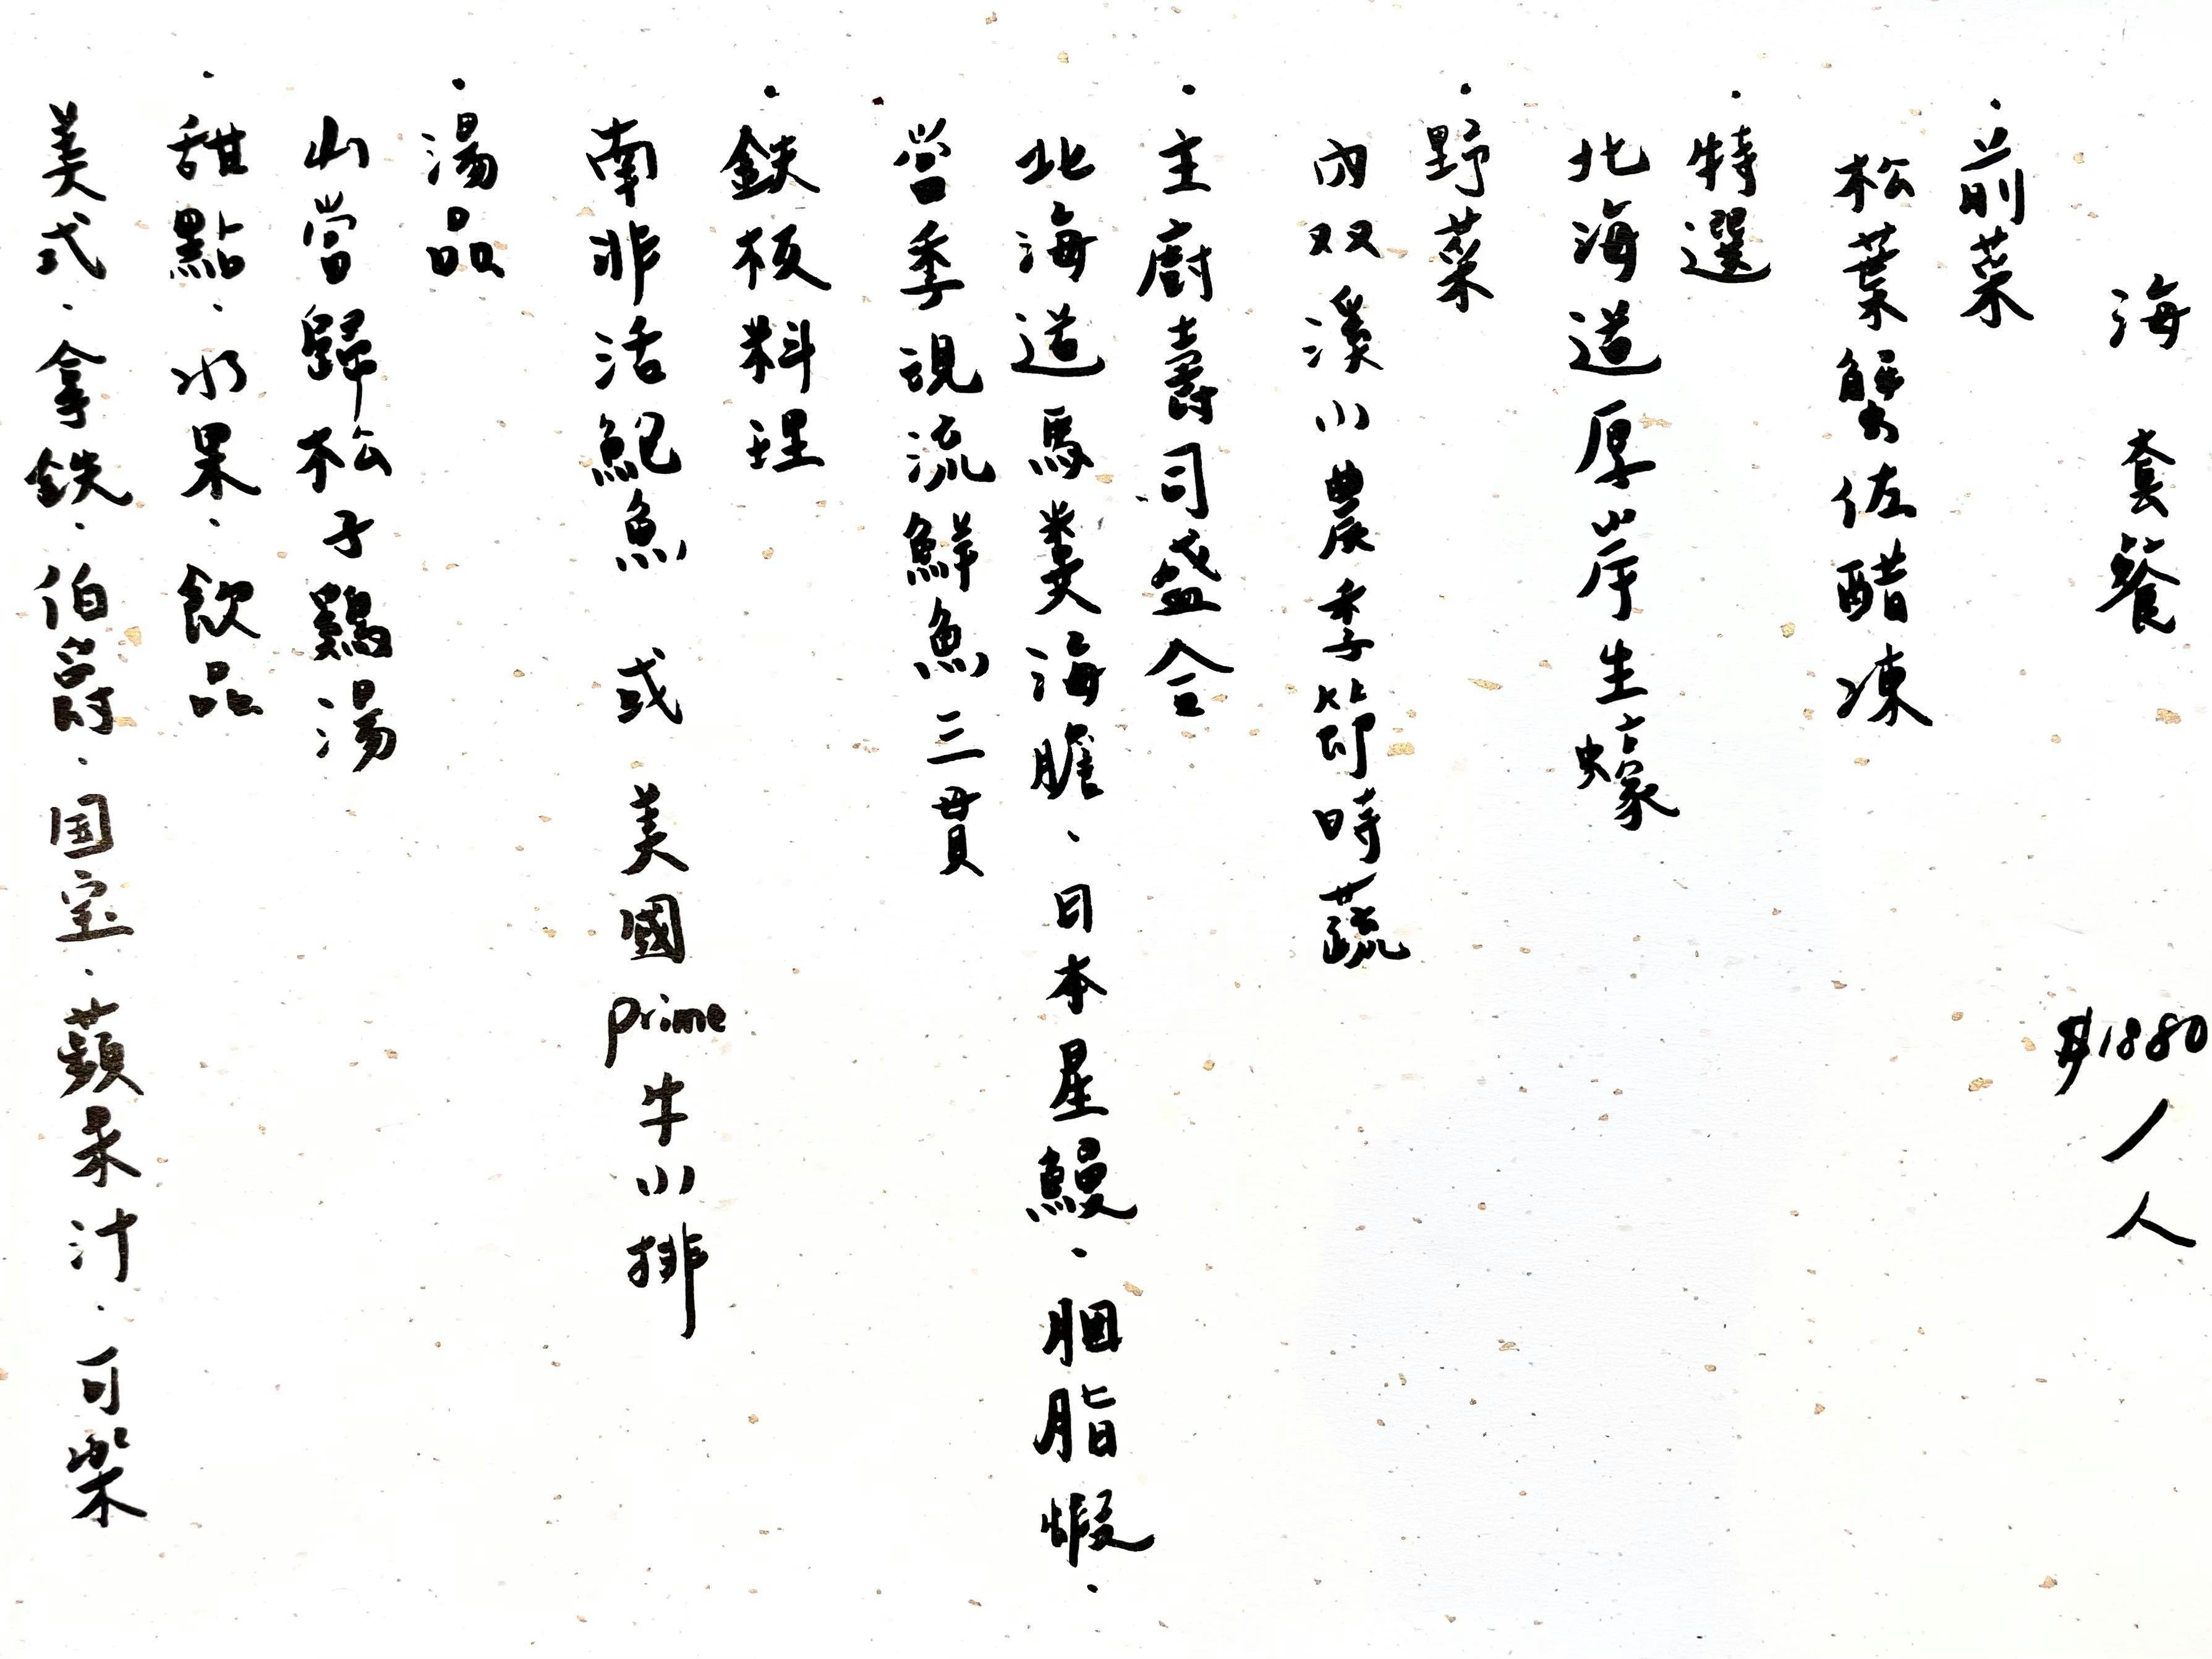 海 套餐 $1880/人
·前菜
松葉蟹佐醋凍
·特選
北海道厚岸生蠔
·野菜
內双溪小農季節時蔬
·主廚壽司盛合
北海道馬糞海膽·日本星鰻·胭脂蝦·
當季現流鮮魚三貫
·鉄板料理
南非活鮑魚 或 美國prime牛小排
·湯品
山當歸松子鷄湯
·甜點·水果·飲品
美式·拿鉄·伯爵·国宝·蘋果汁·可樂